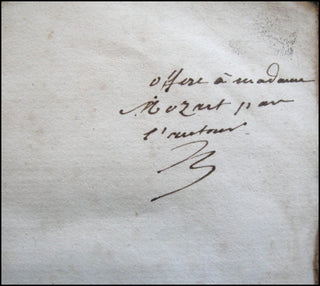 offert à madame
Mozart par
l'auteur.